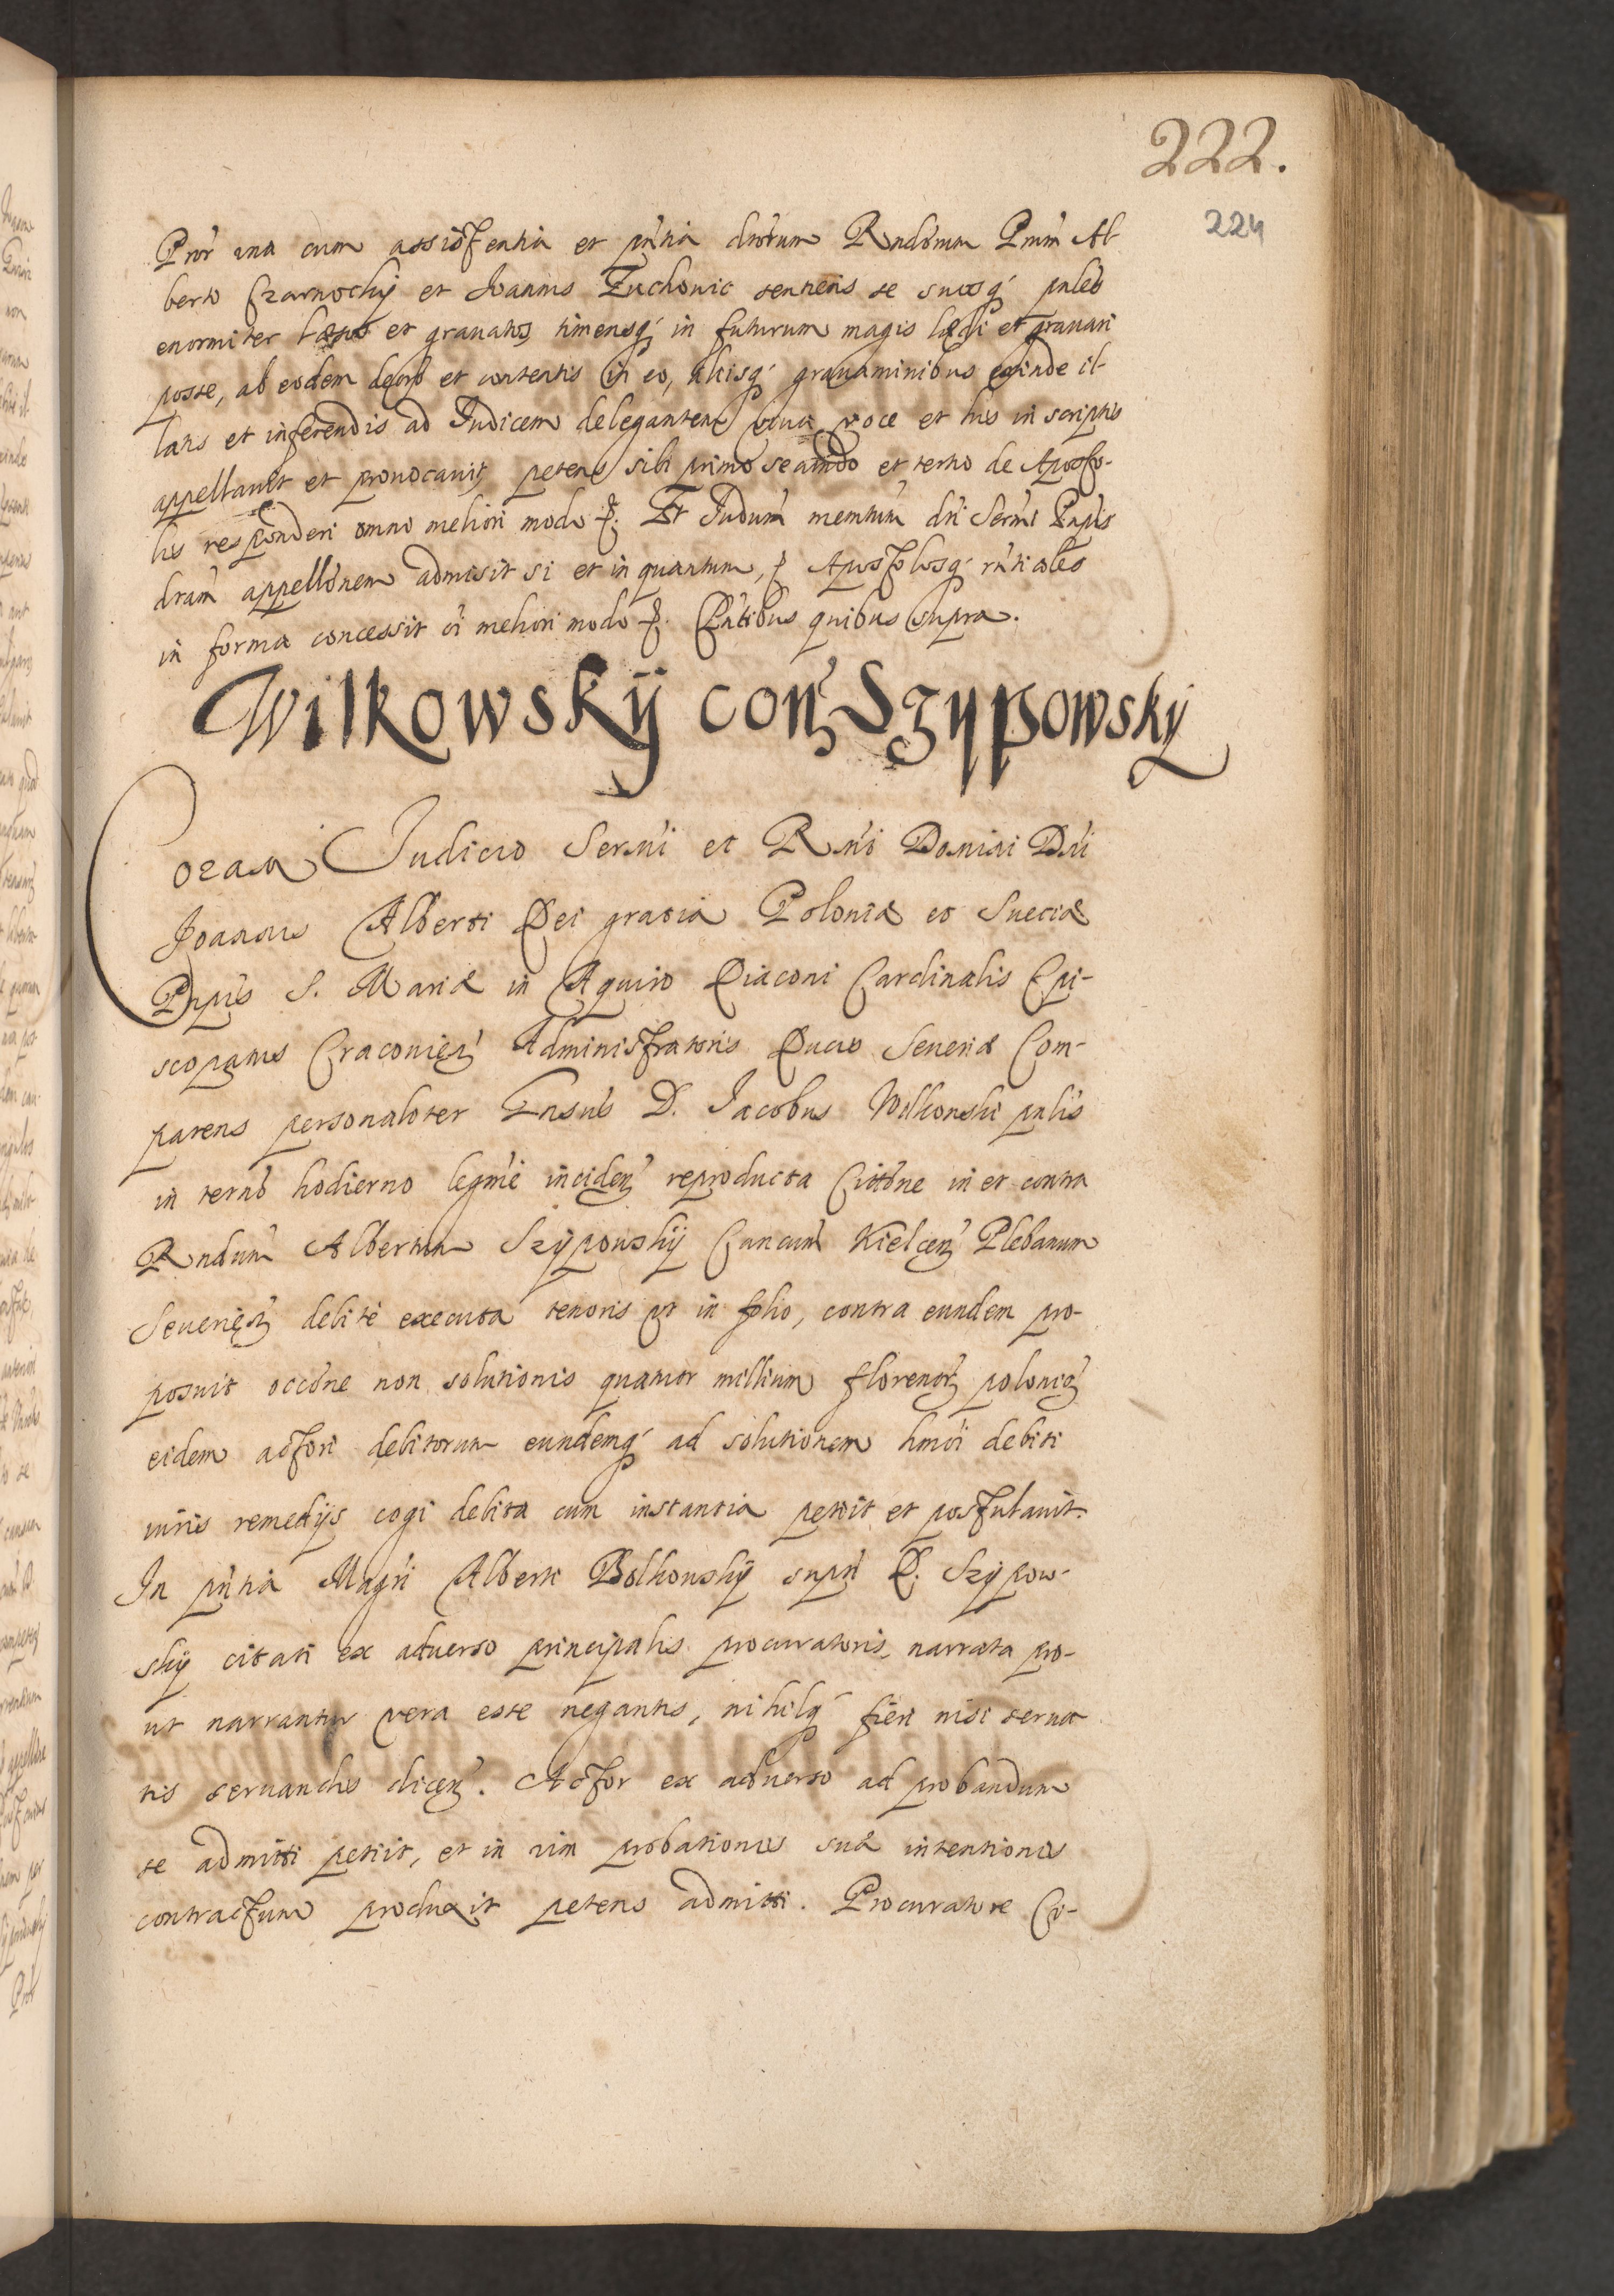 222.
224
Pror una cum assistentia et pntia dictorum Rndorum Pmm Al-
berto Czarnochÿ et Joannis Zuchonic sentiens se suosq́ pnles
enormiter læsos et gravatos timensq́ in futurum magis lædi et gravari
posse, ab eodem decto et contentis in eo, aliisq́ gravaminibus exinde il-
latis et inferendis ad Judicem delegantem viva voce et his in scriptis
appellavit et provocavit petens sibi primo secundo et tertio de Aposto-
lis responderi omno meliori modo &. Et Judum memtum dni Sermi Pnpis
dctam appellonem admisit si et in quantum, & Apostolosq́ rntiales
in forma concessit oi meliori modo &. Pntibus quibus supra.
Wilkowskÿ con Szypowskÿ
Coram Judicio Sermi et Rmi Domini Dni
Joannis Alberti Dei gratia Poloniæ et Sueciæ
Pnpis S. Mariæ in Aquiro Diaconi Cardinalis Epi-
scopatus Cracovien Administratoris Ducis Severiæ Com-
parens personaliter Gnsus D. Jacobus Wilkonski pnlis
in termo hodierno legme inciden reproducta Cittone in et contra
Rndum Albertum Szÿpowskÿ Cancum Kielcen Plebanum
Severien debite executa tenoris ut in folio, contra eundem pro-
posuit occone non solutionis quatuor millium florenor polonic
eidem actori debitorum eundemq́ ad solutionem hmoi debiti
iuris remedÿs cogi debita cum instantia petiit et postulavit.
In pntia Magri Alberti Bolkonskÿ supri D. Szÿpow-
skÿ citati ex adverso principalis procuratoris, narrata pro-
ut narrantur vera esse negantis, nihilq́ fieri nisi serva-
tis servandis dicen. Actor ex adverso ad probandum
se admitti petiit, et in vim probationis suæ intentionis
contractum produxit petens admitti. Procuratore Ci-